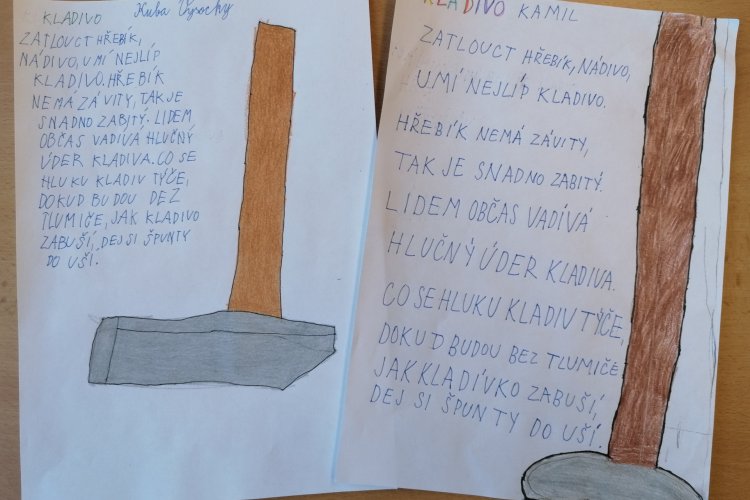 KLADIVO Kuba Vysochy
ZATLOUCT HŘEBÍK,
NÁDIVO, UMÍ NEJLÍP
KLADIVO. HŘEBÍK
NEMÁ ZÁVITY, TAK JE
SNADNO ZABITÝ. LIDEM,
OBČAS VADÍVÁ HLUČNÝ
ÚDER KLADIVA. CO SE
HLUKU KLADIV TÝČE,
DOKUD BUDOU DEZ
TLUMIČE, JAK KLADIVO
ZABUŠÍ, DEJ SI ŠPUNTY
DO UŠÍ.
KLADIVO KAMIL
ZATLOUCT HŘEBÍK, NÁDIVO,
UMÍ NEJLÍP KLADIVO.
HŘEBÍK NEMÁ ZÁVITY,
TAK JE SNADNO ZABITÝ.
LIDEM OBČAS VADÍVÁ
HLUČNÝ ÚDER KLADIVA.
CO SE HLUKU KLADIV TÝČE,
DOKUD BUDOU BEZ TLUMIČE,
JAK KLADÍVKO ZABUŠÍ,
DEJ SI ŠPUNTY DO UŠÍ.